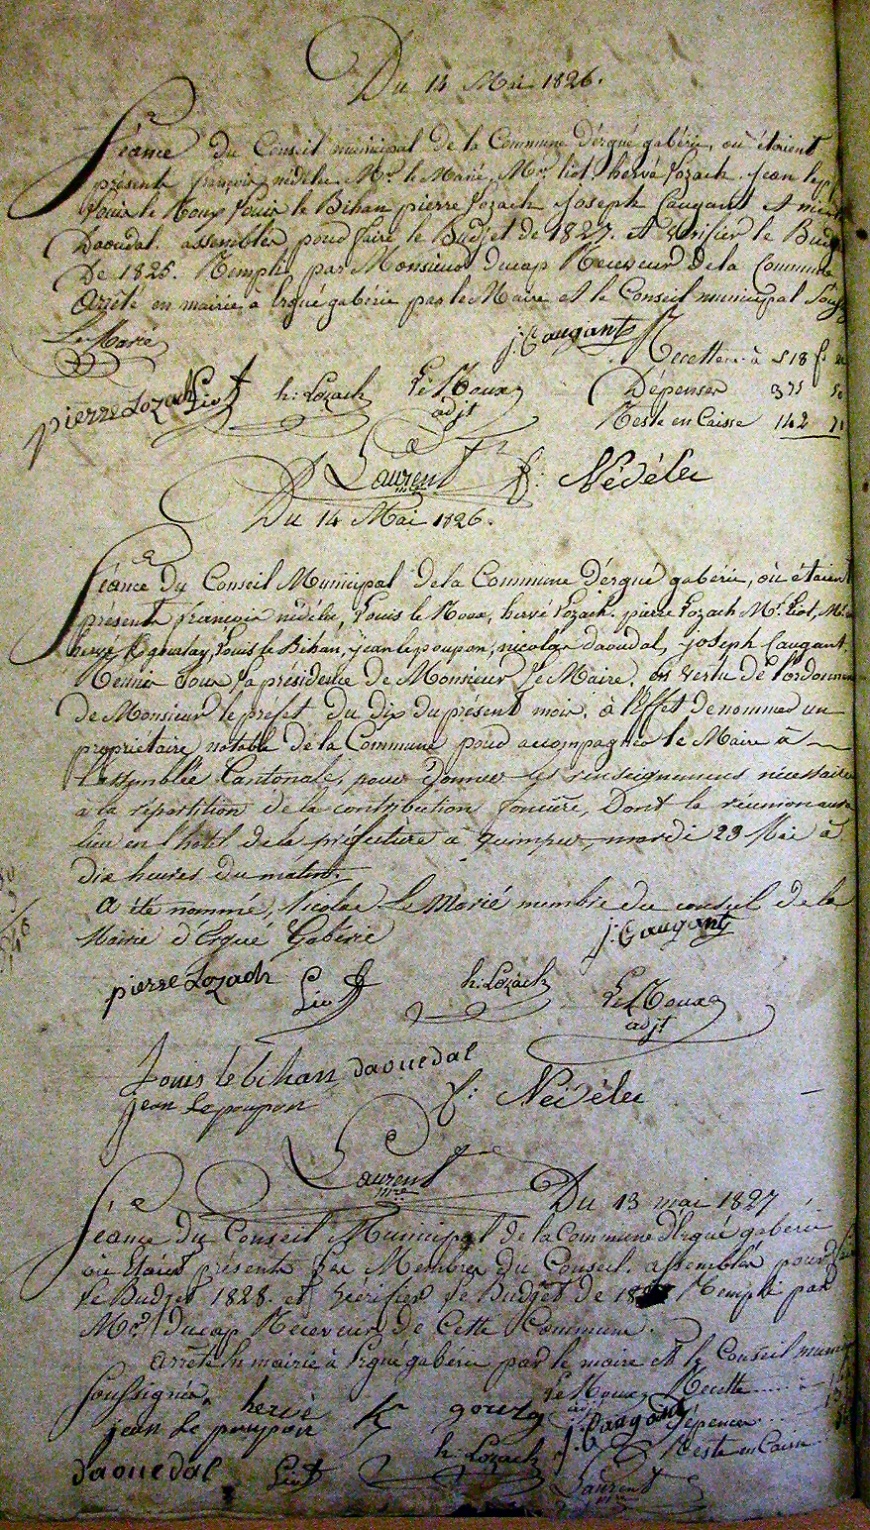 Du 14 Mai 1826.
Séance du Conseil municipal de la Commune d'ergué gabéric, où étaient
présents françois nédélec, Mr. le Maire, Mr. liot, hervé Lozach. jean lep
Louis le Roux Louis le Bihan pierre Lozach joseph Caugant et
Daoudal. assemblés pour faire le Budjet de 1827. et vérifier le Budj
de 1825. Rempli par Monsieur ducap Receveur de la Commune
Arrêté en mairie à Ergué gabéric par le Maire et le Conseil municipal Souss
Le Marié
j: Caugant
Recette à 518 f.
pierre Lozach Liot h: Lozach Le Roux
adjt
Dépenses 375 50
Reste en Caisse 142
Laurent
mre
f: Nédélec
Du 14 Mai 1826.
Séance du Conseil Municipal de la Commune d'ergué gabéric, où étaient
présents françois nédélec, Louis le Roux, hervé Lozach. pierre Lozach Mr. Liot, Mr.
hervé Louis le Bihan, jean lepoupon, nicolas daoudal, joseph Caugant.
Réunis sous la présidence de Monsieur Le Maire. en vertu de l'ordonnan
de Monsieur le préfet du dix du présent mois. à l'Effet de nommer un
propriétaire notable de la Commune pour accompagner le Maire à
l'assemblée Cantonale, pour donner les renseignemens nécessaire
à la répartition de la contribution foncière, Dont la réunion aura
lieu en l'hôtel de la préfecture à quimper, mardi 23 Mai à
dix heures du matin.
A été nommé, Nicolas Le Marié membre du conseil de la
Mairie d'Ergué Gabéric
j: Caugant
pierre Lozach Liot h: Lozach Le Roux
adjt
Louis le bihan daouedal
jean Le poupon
f: Nédélec
Laurent
mre
Du 13 mai 1827
Séance du Conseil Municipal de la Commune d'Ergué gabéric
où Etaient présents les Membres du Conseil. assemblés pour
le Budjet 1828. et Vérifier le Budjet de Rempli par
Mr. ducap Receveur de Cette Commune.
Arrêté En mairie à Ergué gabéric par le maire et le Conseil muni
Soussignés.
Le Roux
adjt
Recette
hervé
jean Le poupon
j: Caugant
Dépences
h: Lozach
Reste en Caisse
daouedal Liot
Laurent
mre